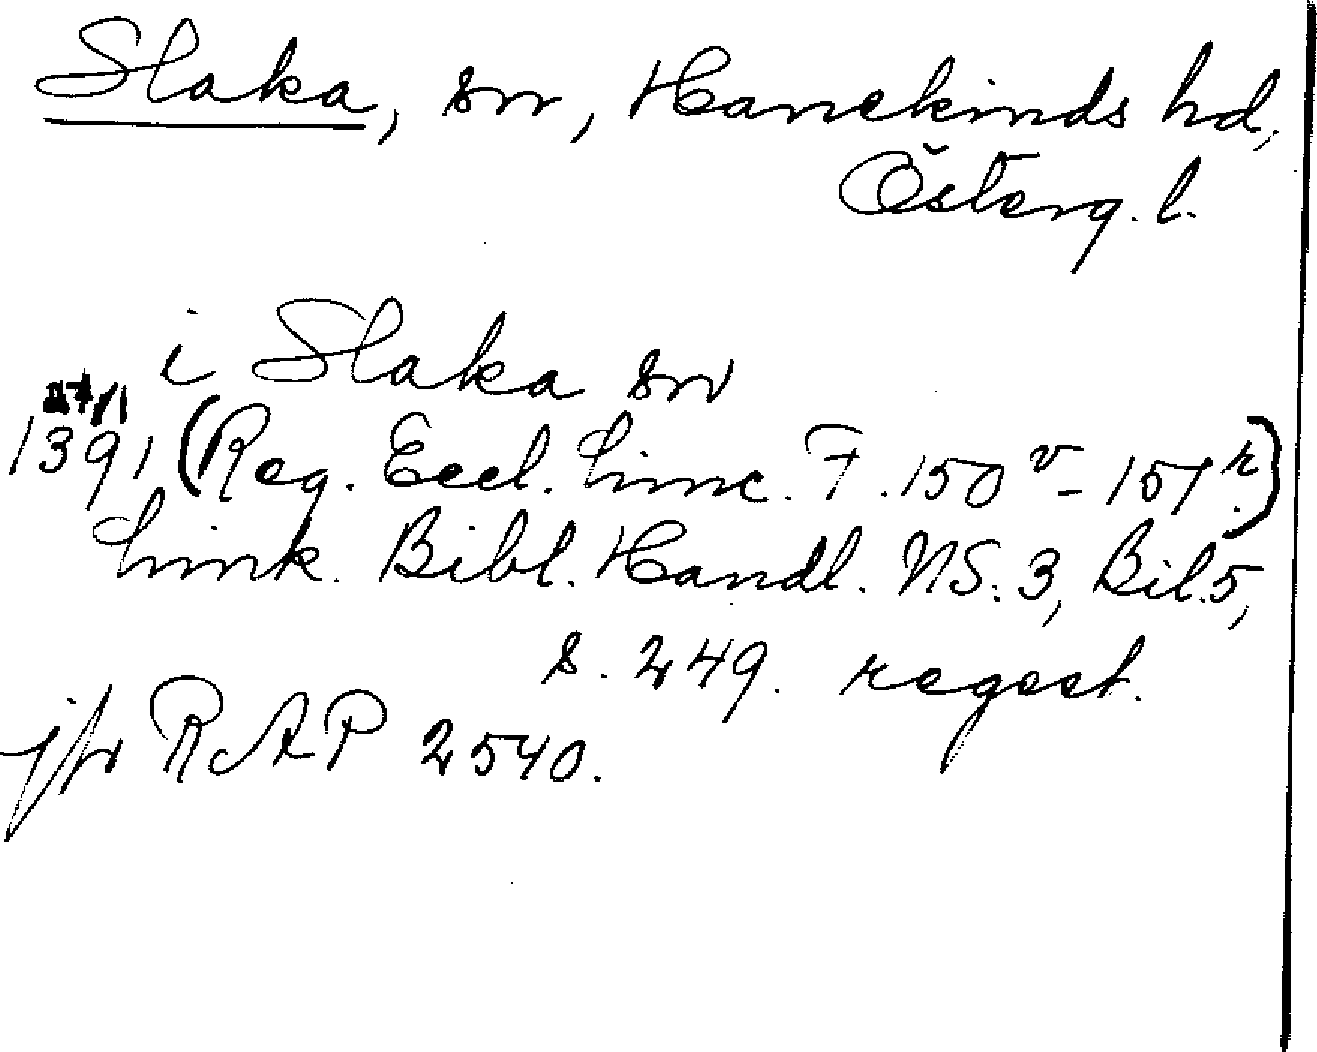 Slaka, sn, Hanekinds hd,
Österg. l.
i Slaka sn
1391 (Reg. Eccl. Linc. F. 150 v - 151 r.)
Link. Bibl. Handl. NS. 3, Bil. 5,
s. 249. regest.
jfr RAP 2540.